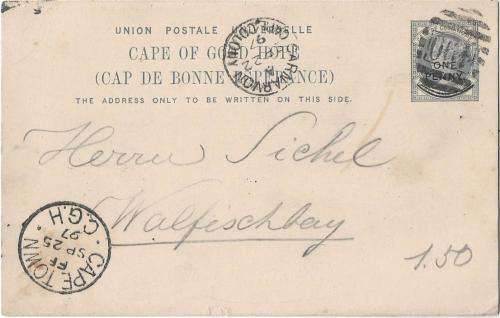 UNION POSTALE UNIVERSELLE
CAPE OF GOOD HOPE
(CAP DE BONNE ESPERANCE)
THE ADDRESS ONLY TO BE WRITTEN ON THIS SIDE.
ONE
PENNY.
CARNARVON
CAPE COLONY
97
Herrn Sichel
Walfischbay
1.50
CAPE TOWN
FF
SP 25
97
C.G.H